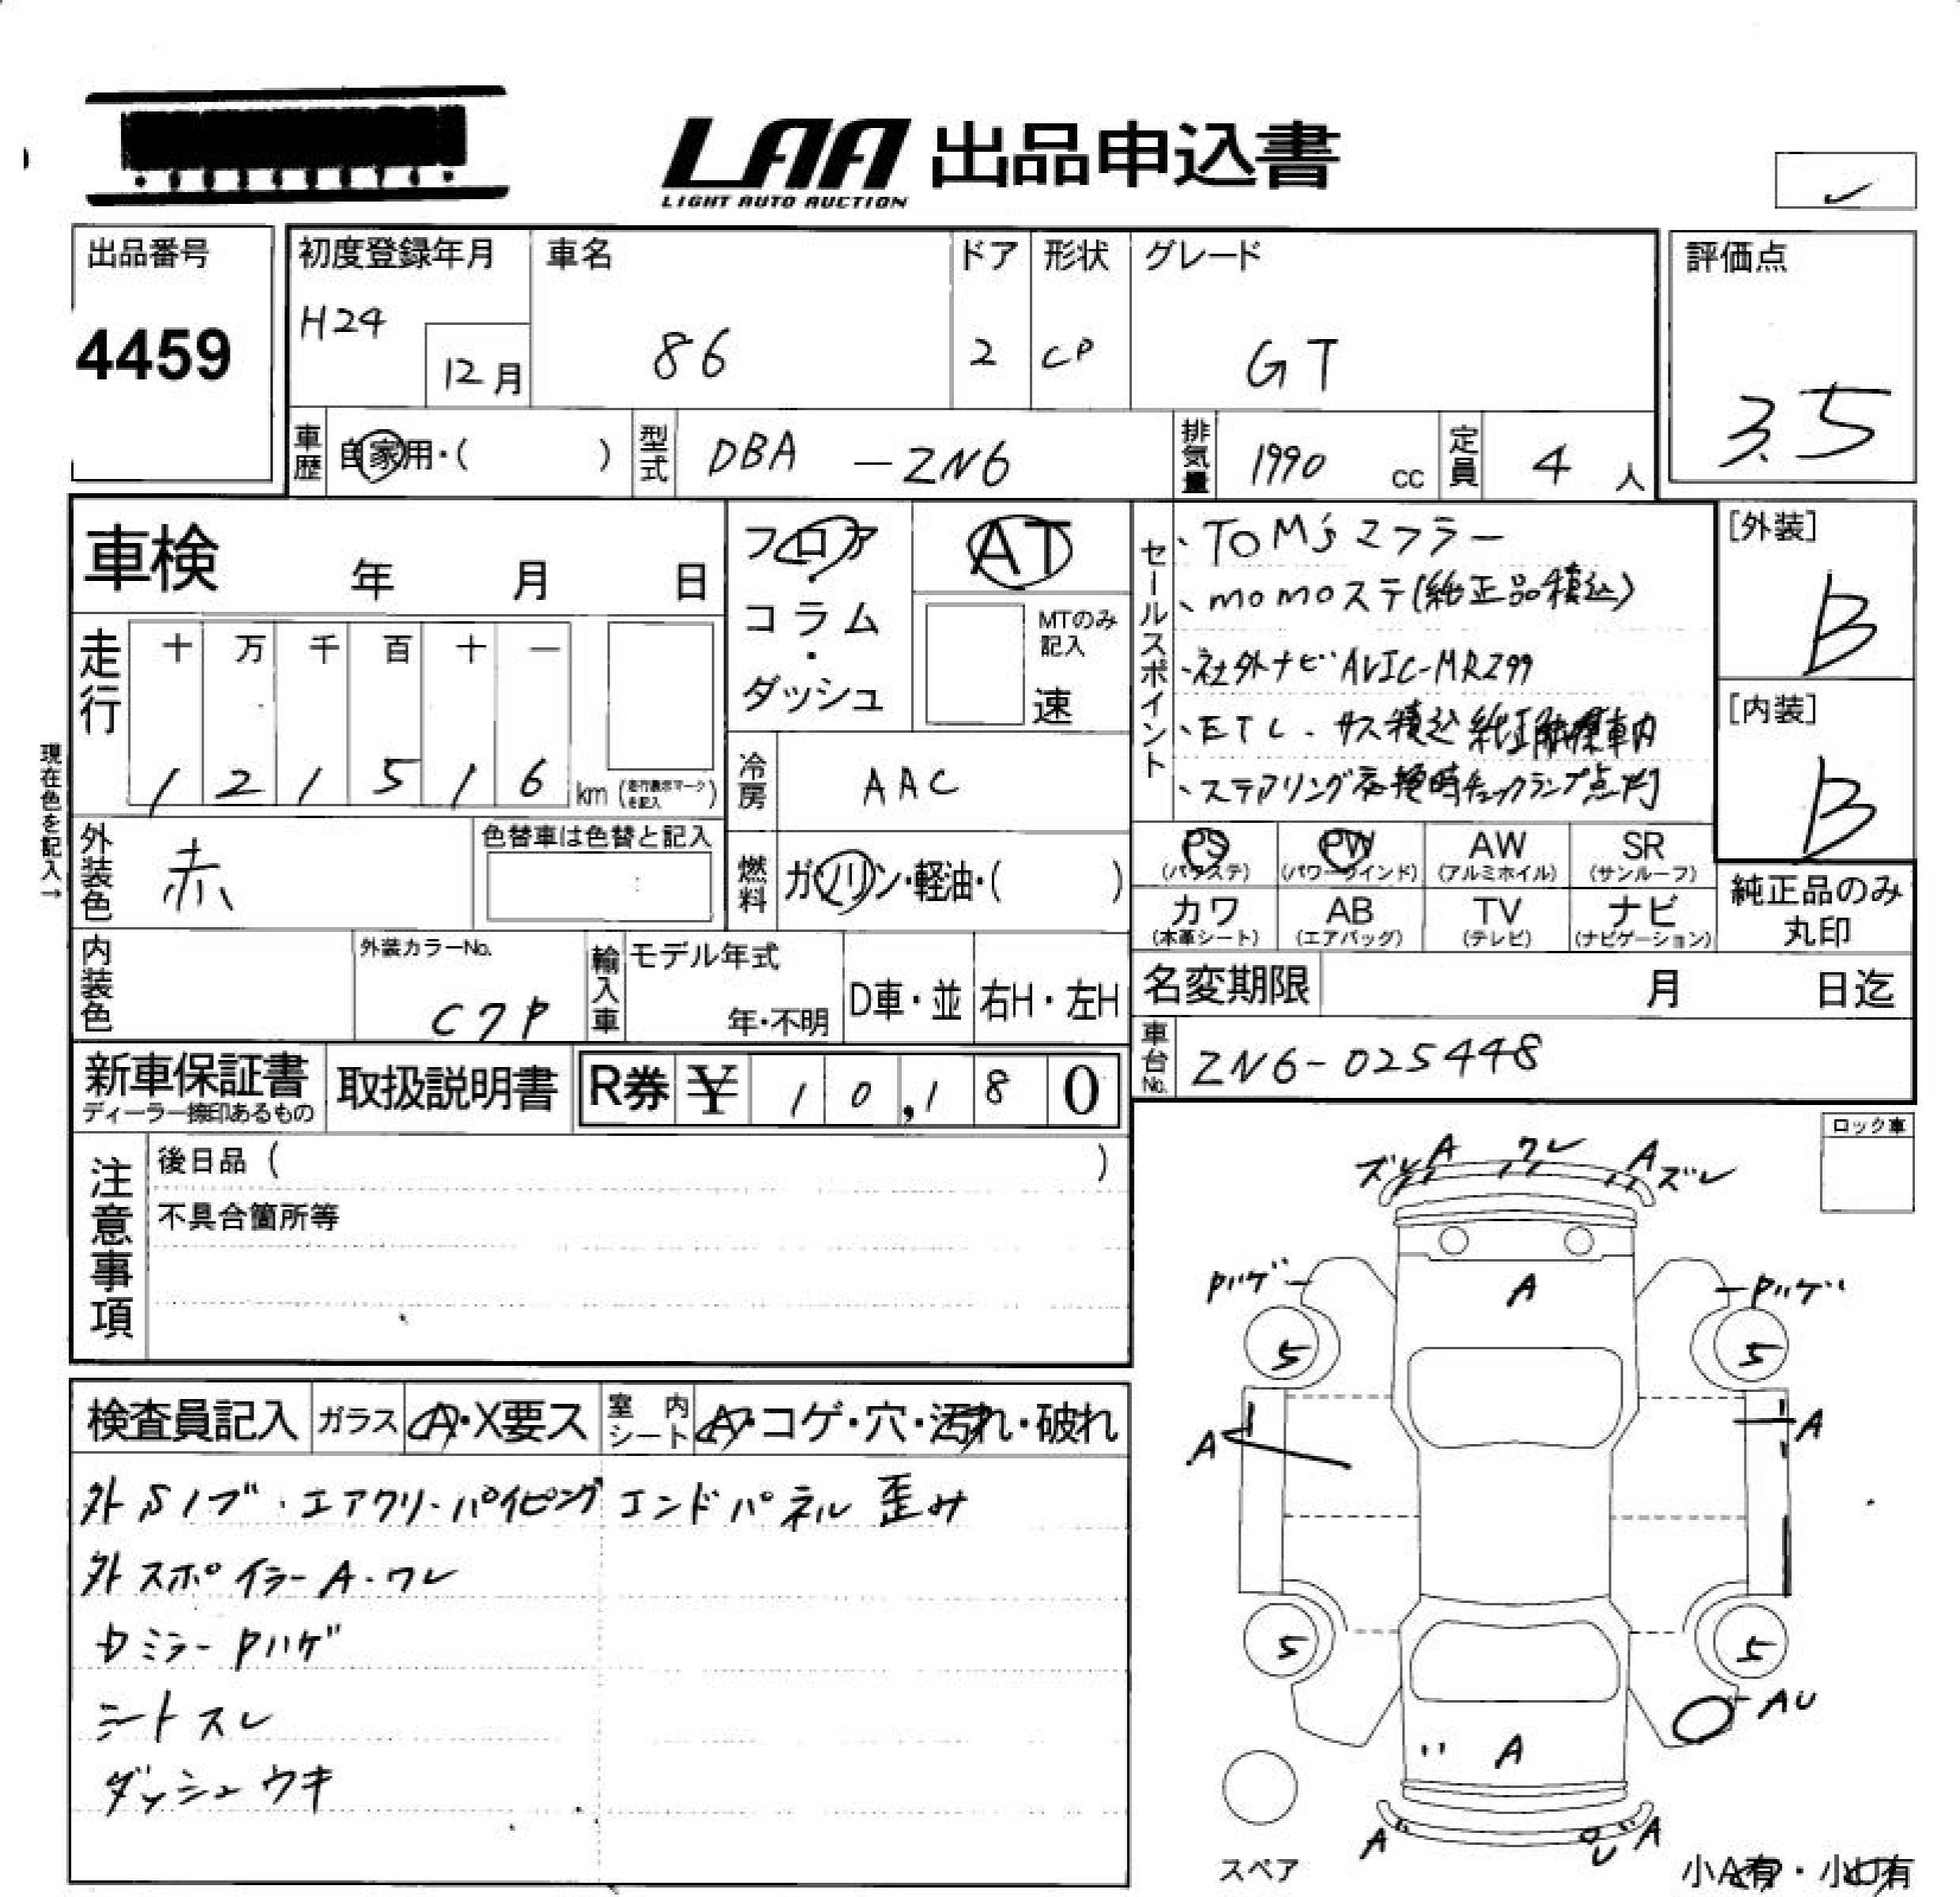 LAA 出品申込書
LIGHT AUTO AUCTION
出品番号
4459
初度登録年月
H24
12月
車名
86
ドア
2
形状
CP
グレード
GT
評価点
3.5
車歴
自家用・( )
型式
DBA -ZN6
排気量
1990 cc
定員
4 人
車検 年 月 日
フロア・コラム・ダッシュ
AT
MTのみ記入
速
走行
十 万 千 百 十 一
1 2 1 5 1 6 km
現在色を記入→
冷房
AAC
外装色
赤
色替車は色替と記入
燃料
ガソリン・軽油・( )
内装色
外装カラーNo.
C7P
輸入車
モデル年式
年・不明
D車・並
右H・左H
新車保証書
ディーラー捺印あるもの
取扱説明書
R券 ¥ 10,180
セールスポイント
、TOM'sマフラー
、momoステ(純正品積込)
・社外ナビ AVIC-MRZ99
・ETC・サス積込 純正
、ステアリング交換時チェックランプ点灯
[外装]
B
[内装]
B
PS (パワステ)
PW (パワーウインド)
AW (アルミホイル)
SR (サンルーフ)
カワ (本革シート)
AB (エアバッグ)
TV (テレビ)
ナビ (ナビゲーション)
純正品のみ丸印
名変期限 月 日迄
車台No.
ZN6-025448
注意事項
後日品 ( )
不具合箇所等
ロック車
ズレ A ワレ A ズレ
Pハゲ A Pハゲ
5 5
A A
5 5
AU
A
A A
スペア
小A有・小U有
検査員記入
ガラス A・X要ス
室内シート A・コゲ・穴・汚れ・破れ
外Sノブ・エアクリ・パイピング エンドパネル 歪み
外スポイラーA・ワレ
ミラーPハゲ
シートスレ
ダッシュウキ